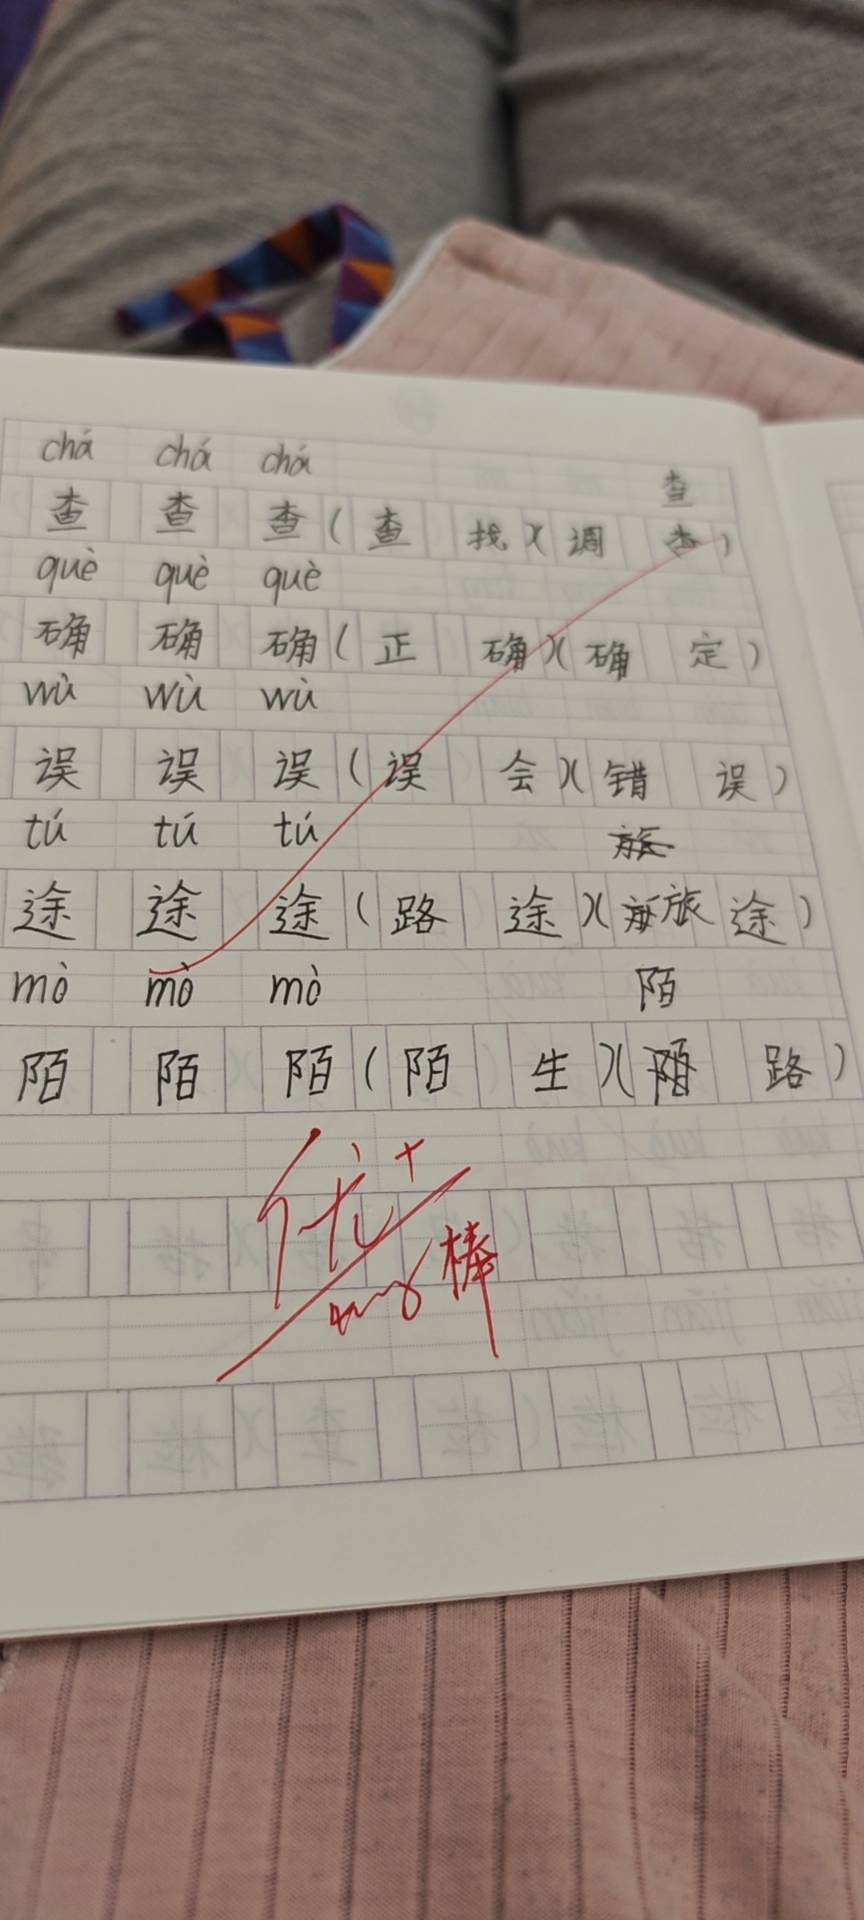 chá chá chá
查
查 查 查 ( 查 找 ) ( 调 查 )
què què què
确 确 确 ( 正 确 ) ( 确 定 )
wù wù wù
误 误 误 ( 误 会 ) ( 错 误 )
tú tú tú
途 途 途 ( 路 途 ) ( 旅 途 )
mò mò mò
陌
陌 陌 陌 ( 陌 生 ) ( 陌 路 )
优+
棒